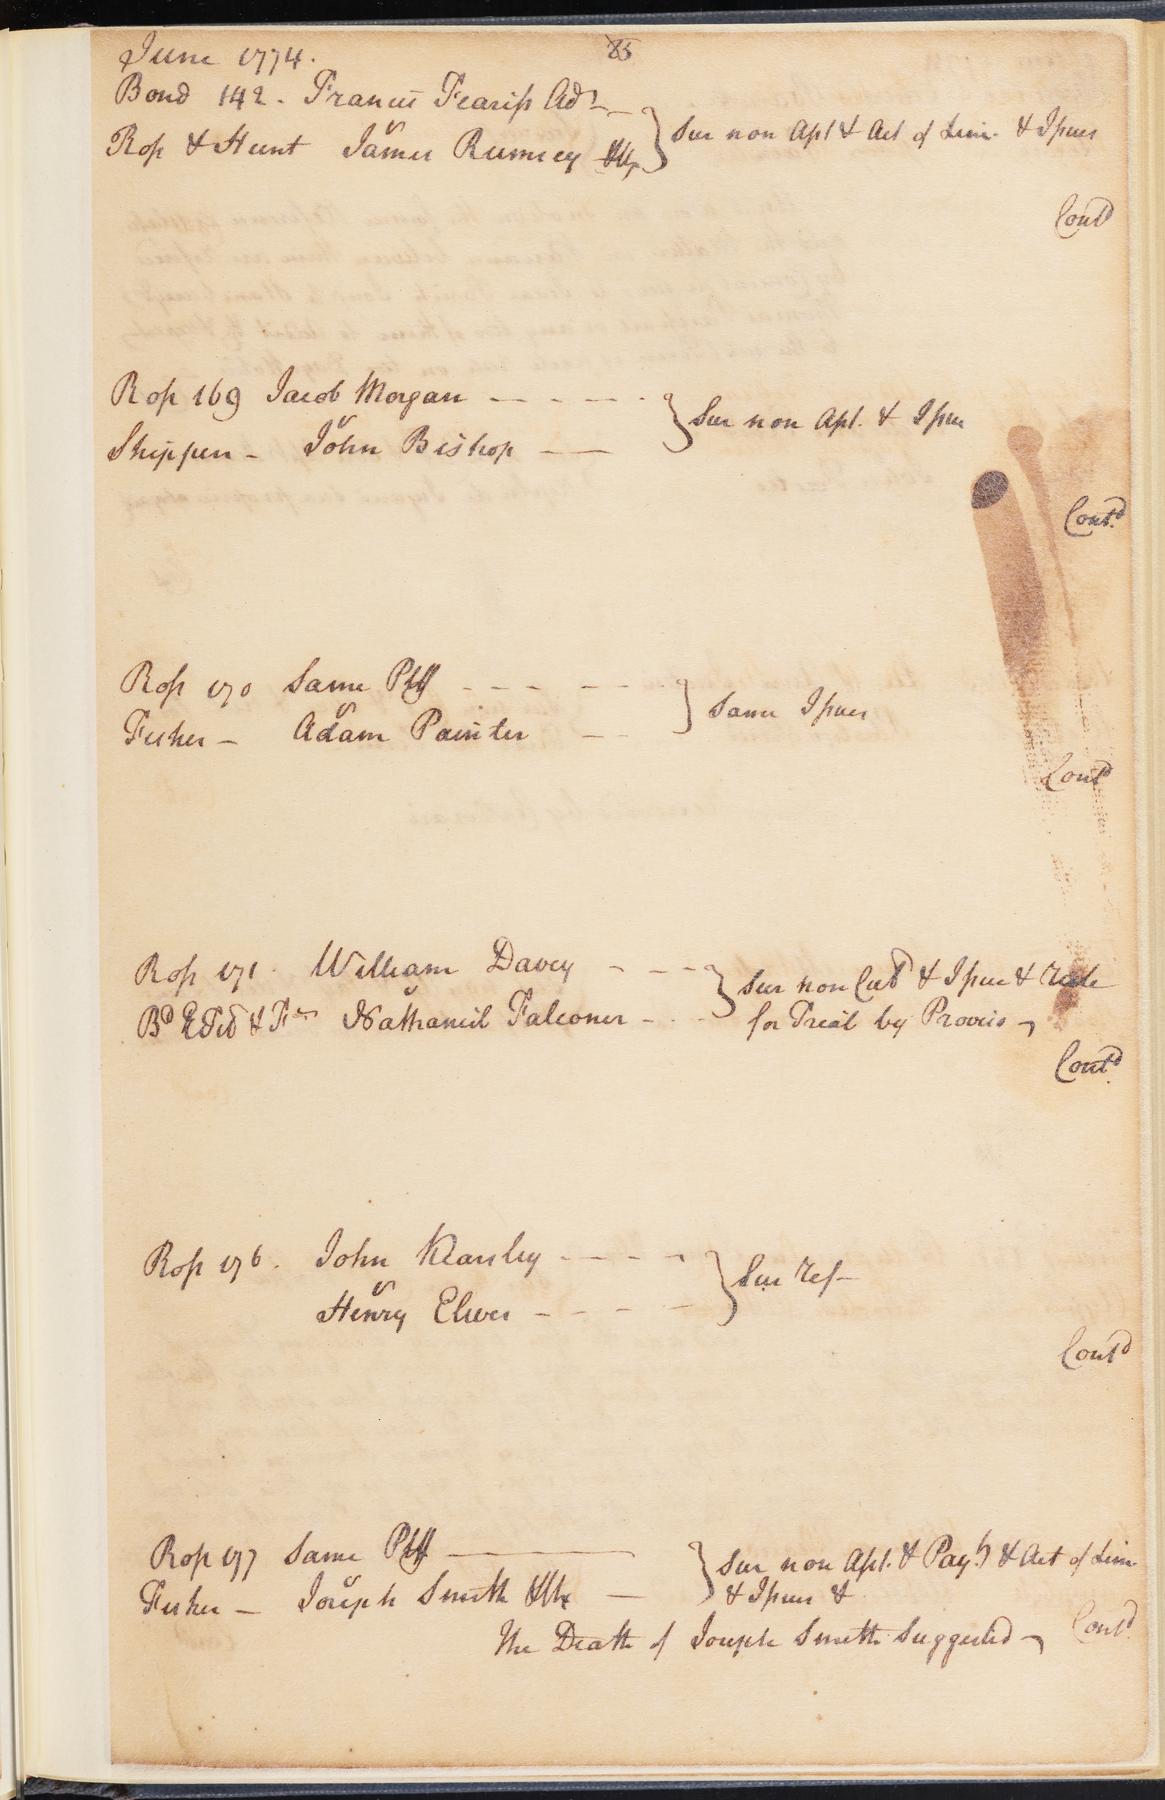 June 1774.
85
Bond 142. Francis Fearis Adr
vs
Ross & Hunt James Rumsey
Sur non Aſst & Act of Lim. & Issues
Contd
Ross 169 Jacob Morgan
vs
Shippen - John Bishop
Sur non Aſst. & Issue
Contd
Ross 170 Same Plff
vs
Fisher - Adam Painter
Same Issues
Contd
Ross 171. William Davey
vs
Nathaniel Falconer
Sur non Culd & Issue & Rule
for Trial by Proviso
Contd
Ross 176. John Kearsley
vs
Henry Elwes
Sur ref
Contd
Ross 177 Same Plff
vs
Fisher - Joseph Smith
Sur non Aſst. & Payt & Act of Lim
& Issues &
The Death of Joseph Smith Suggested
Contd